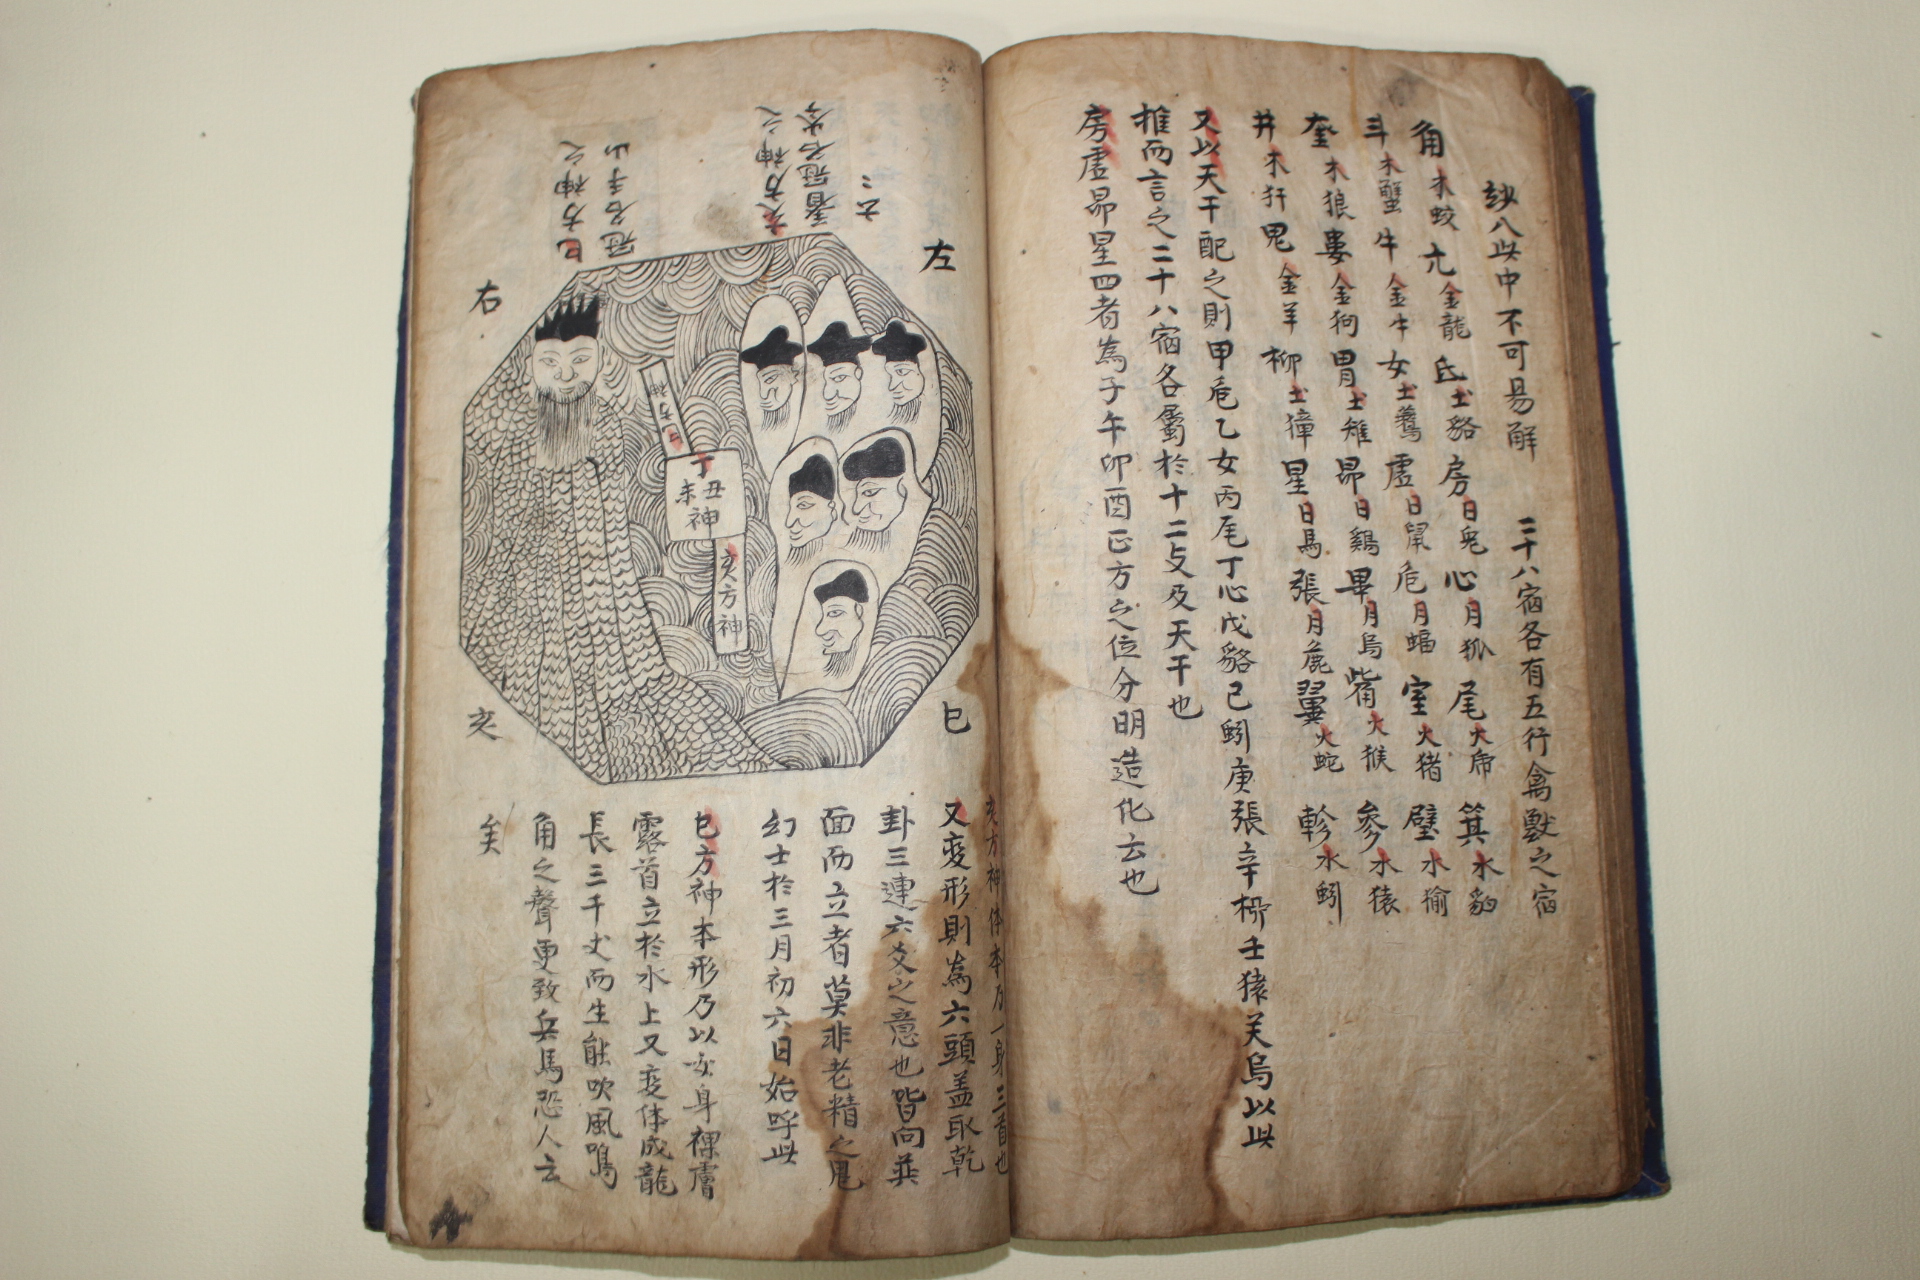 妙八此中不可易解 二十八宿各有五行禽獸之宿
角木蛟亢金龍氐土貉房日兎心月狐尾火虎箕水豹
斗木蟹牛金牛女土鷰虛日鼠危月蝠室火猪壁水㺄
奎木狼婁金狗胃土雉昴日鷄畢月烏觜火猴參水猿
井木犴鬼金羊柳土獐星日馬張月鹿翼火蛇軫水蚓
又以天干配之則甲危乙女丙尾丁心戊貉己蚓庚張辛柳壬猿癸烏以此
推而言之二十八宿各屬於十二支及天干也
房虛昴星四者爲子午卯酉正方之位分明造化云也
左
右
亥
巳
亥方神之
着冠名
巳方神之
冠名
巳方神
丁
丑未神
亥方神
亥方神体本乃一身三首也
又変形則爲六頭盖取乾
卦三連六爻之意也皆向
面而立者莫非老精之鬼
幻士於三月初六日始呼此
巳方神本形乃以女身裸膚
露首立於水上又变体成龍
長三千丈而生能吹風鳴
角之聲更致兵馬恐人云
矣